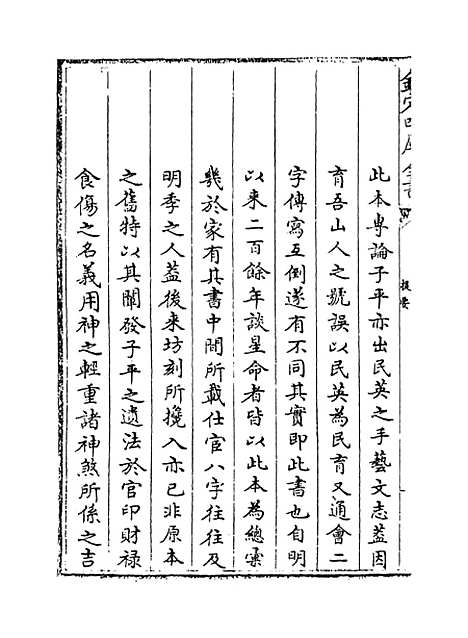 欽定四庫全書
提要
此本専論子平亦出民英之手藝文志蓋因
育吾山人之號誤以民英為民育又通會二
字傳寫互倒遂有不同其實即此書也自明
以來二百餘年談星命者皆以此本為總彚
幾於家有其書中間所載仕宦八字往往及
明季之人蓋後來坊刻所攙入亦已非原本
之舊特以其闡發子平之遺法於官印財禄
食傷之名義用神之輕重諸神煞所係之吉